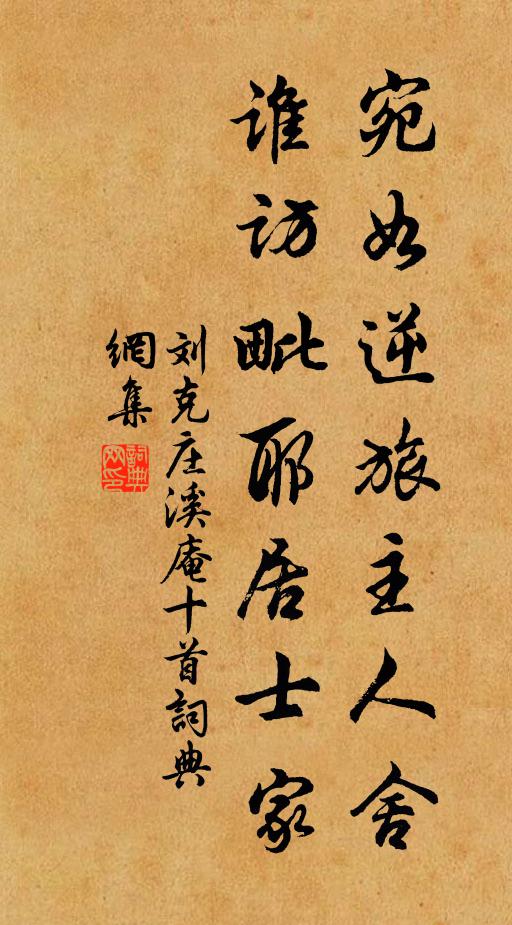 宛如逆旅主人舍
誰訪毗耶居士家
刘克庄溪庵十首詞典
網集
詞典网印